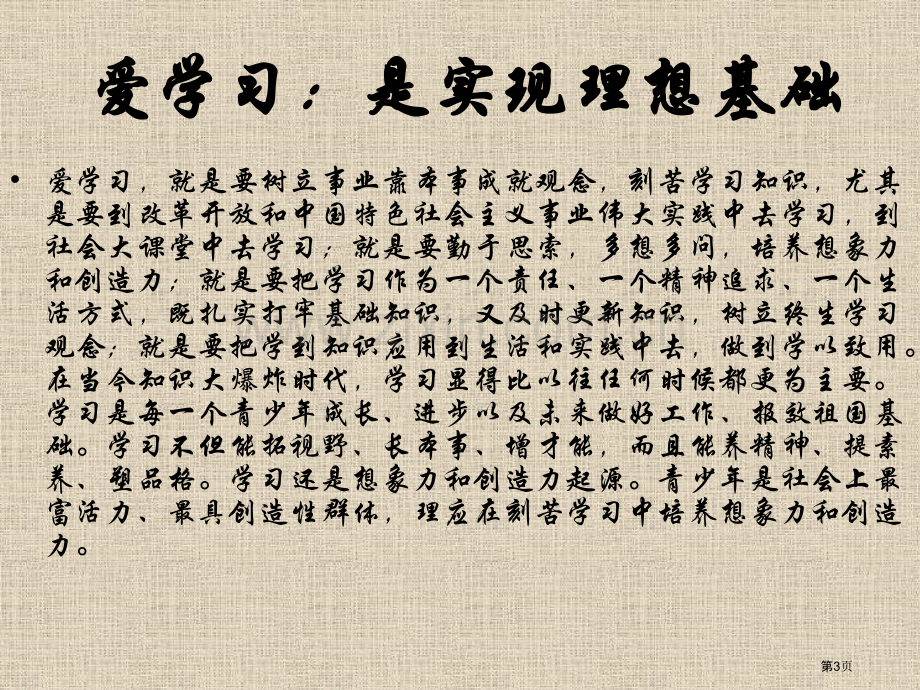 爱学习：是实现理想基础
• 爱学习，就是要树立事业靠本事成就观念，刻苦学习知识，尤其
是要到改革开放和中国特色社会主义事业伟大实践中去学习，到
社会大课堂中去学习；就是要勤于思索，多想多问，培养想象力
和创造力；就是要把学习作为一个责任、一个精神追求、一个生
活方式，既扎实打牢基础知识，又及时更新知识，树立终生学习
观念；就是要把学到知识应用到生活和实践中去，做到学以致用。
在当今知识大爆炸时代，学习显得比以往任何时候都更为主要。
学习是每一个青少年成长、进步以及未来做好工作、报效祖国基
础。学习不但能拓视野、长本事、增才能，而且能养精神、提素
养、塑品格。学习还是想象力和创造力起源。青少年是社会上最
富活力、最具创造性群体，理应在刻苦学习中培养想象力和创造
力。
第3页